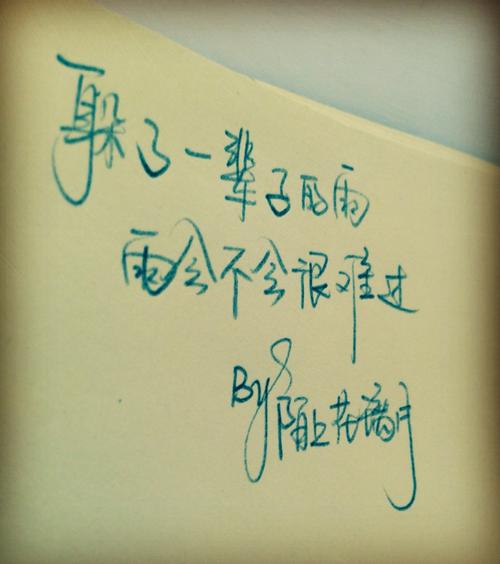 躲了一辈子的雨
雨会不会很难过
By 陌上花 月